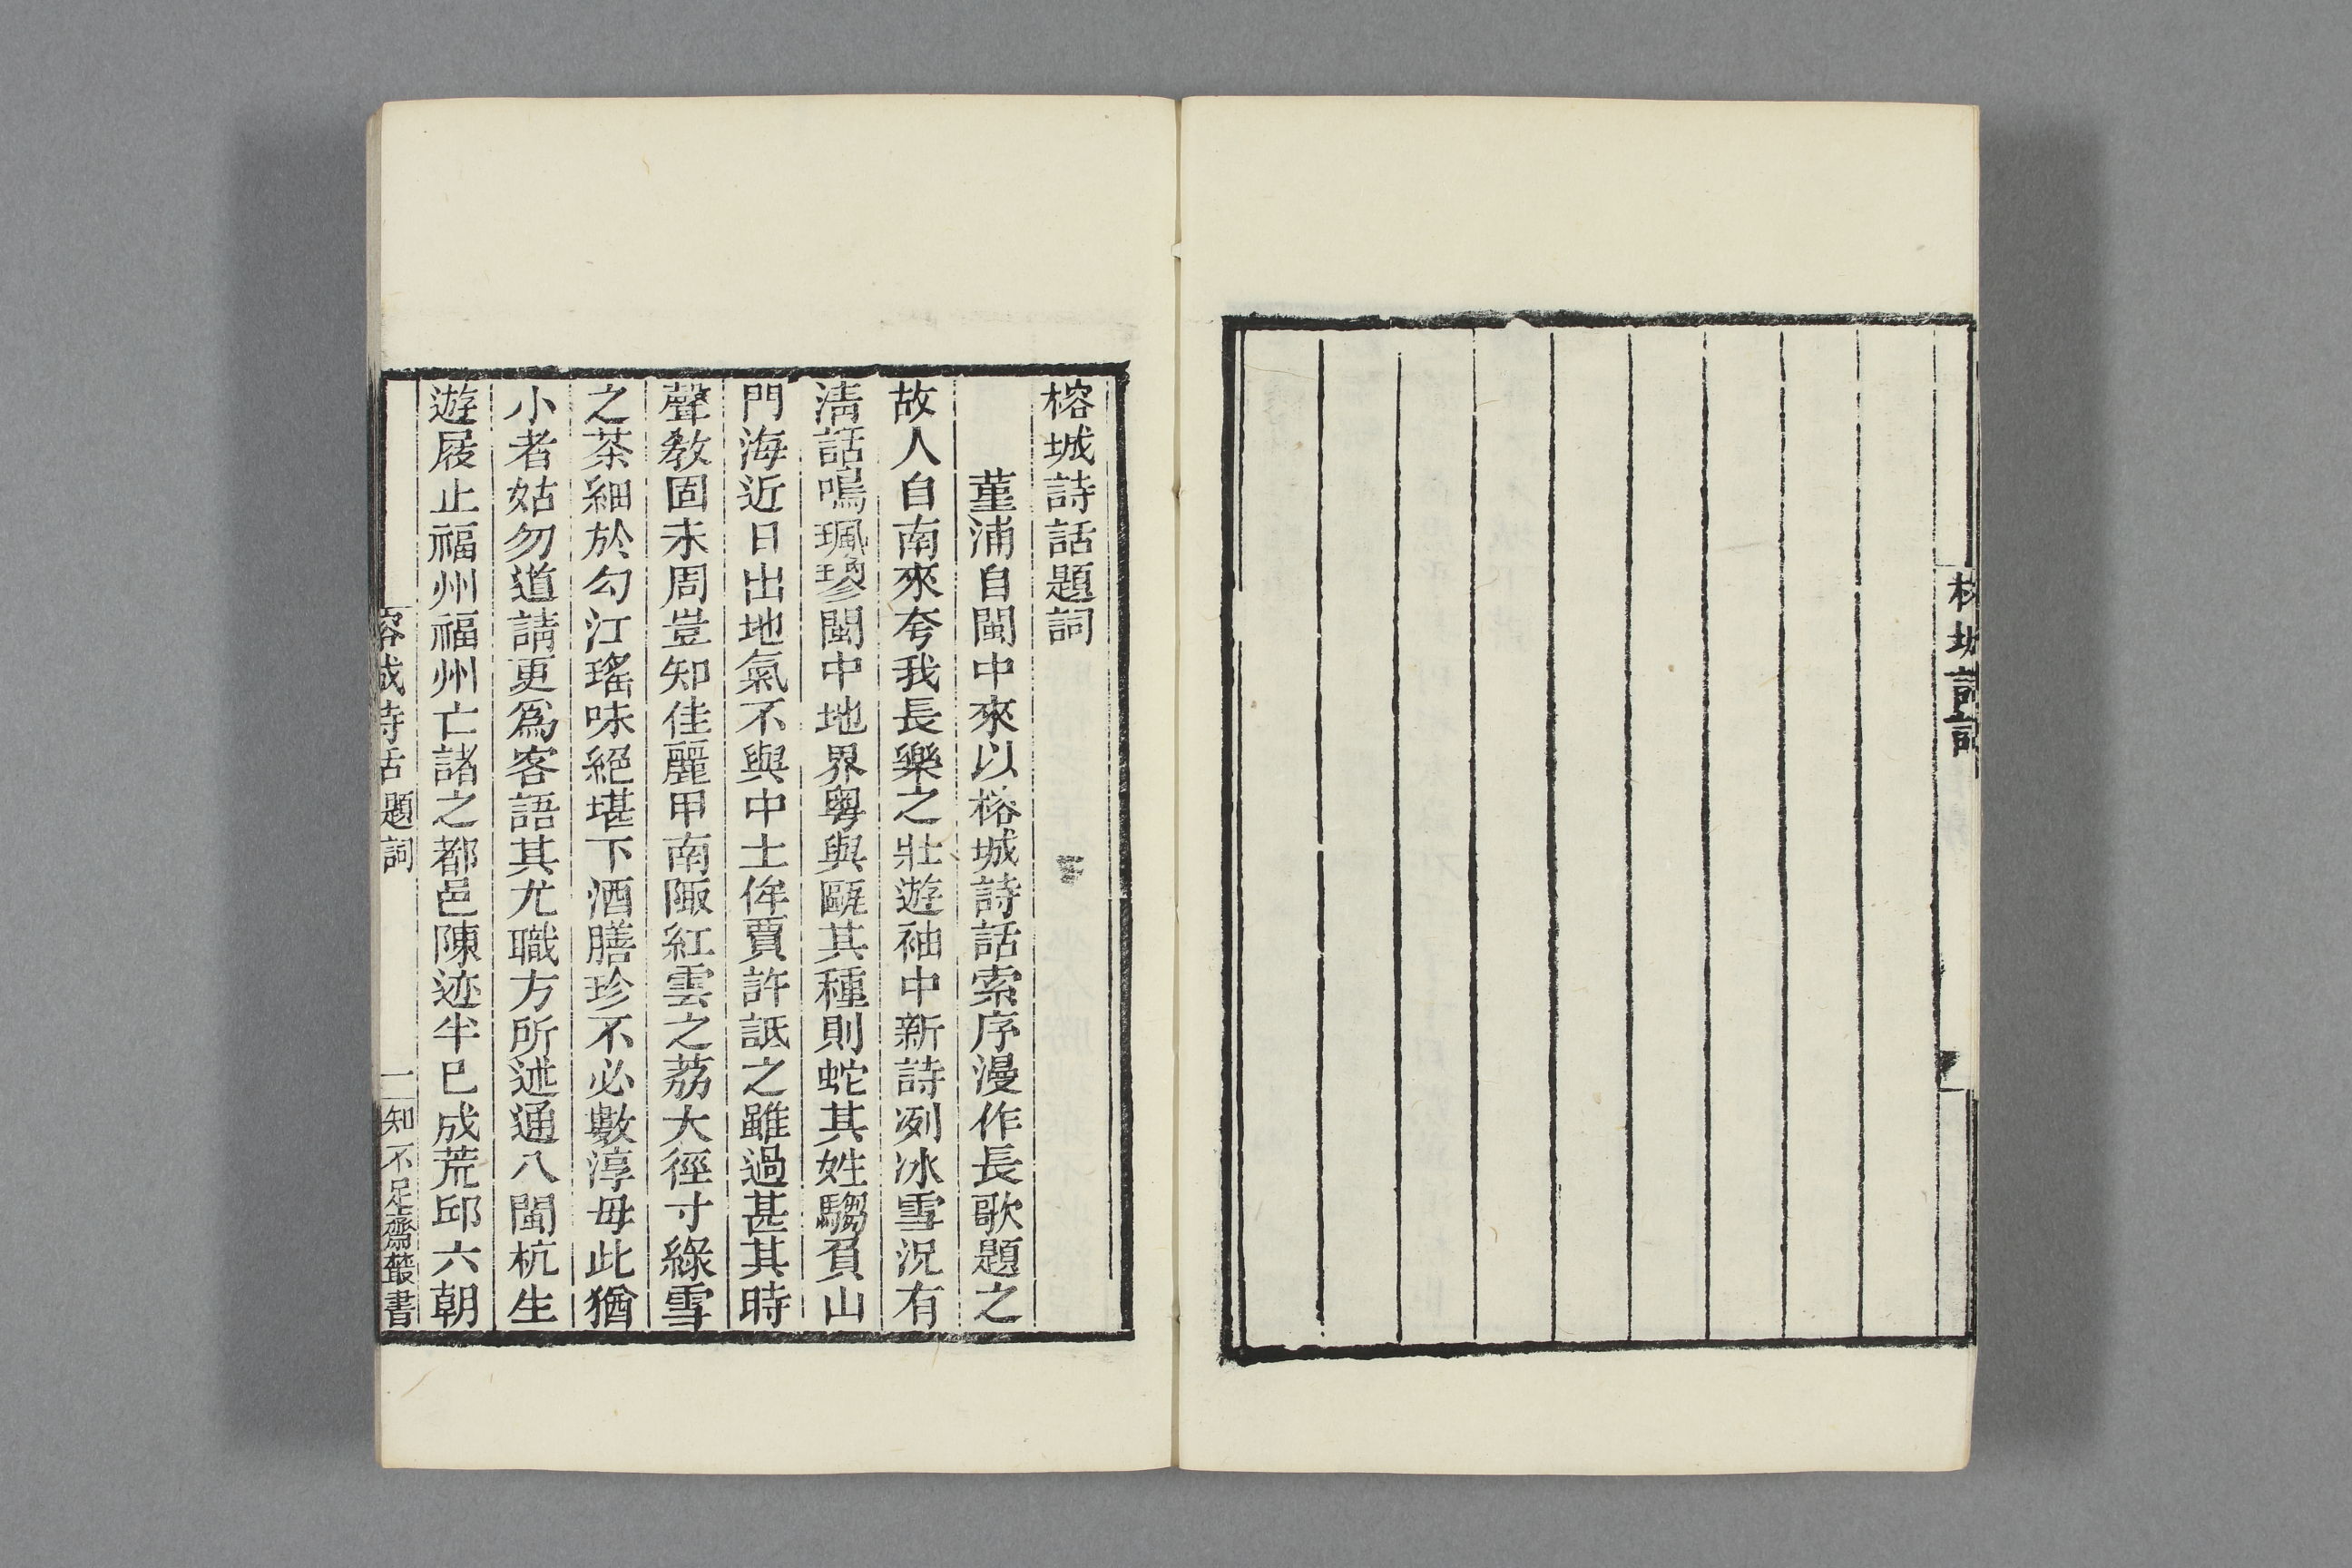 榕城詩話
榕城詩話題詞
菫浦自閩中來以榕城詩話索序漫作長歌題之
故人自南來夸我長樂之壯遊袖中新詩冽冰雪況有
淸話鳴珮璆閩中地界粤與甌其種則蛇其姓騶負山
門海近日出地氣不與中土侔賈許詆之雖過甚其時
聲敎固未周豈知佳麗甲南陬紅雲之荔大徑寸綠雪
之茶細於勾江瑤味絕堪下酒膳珍不必數淳毋此猶
小者姑勿道請更爲客語其尤職方所述通八閩杭生
遊屐止福州福州亡諸之都邑陳迹半已成荒邱六朝
榕城詩話 題詞 一 知不足齋叢書